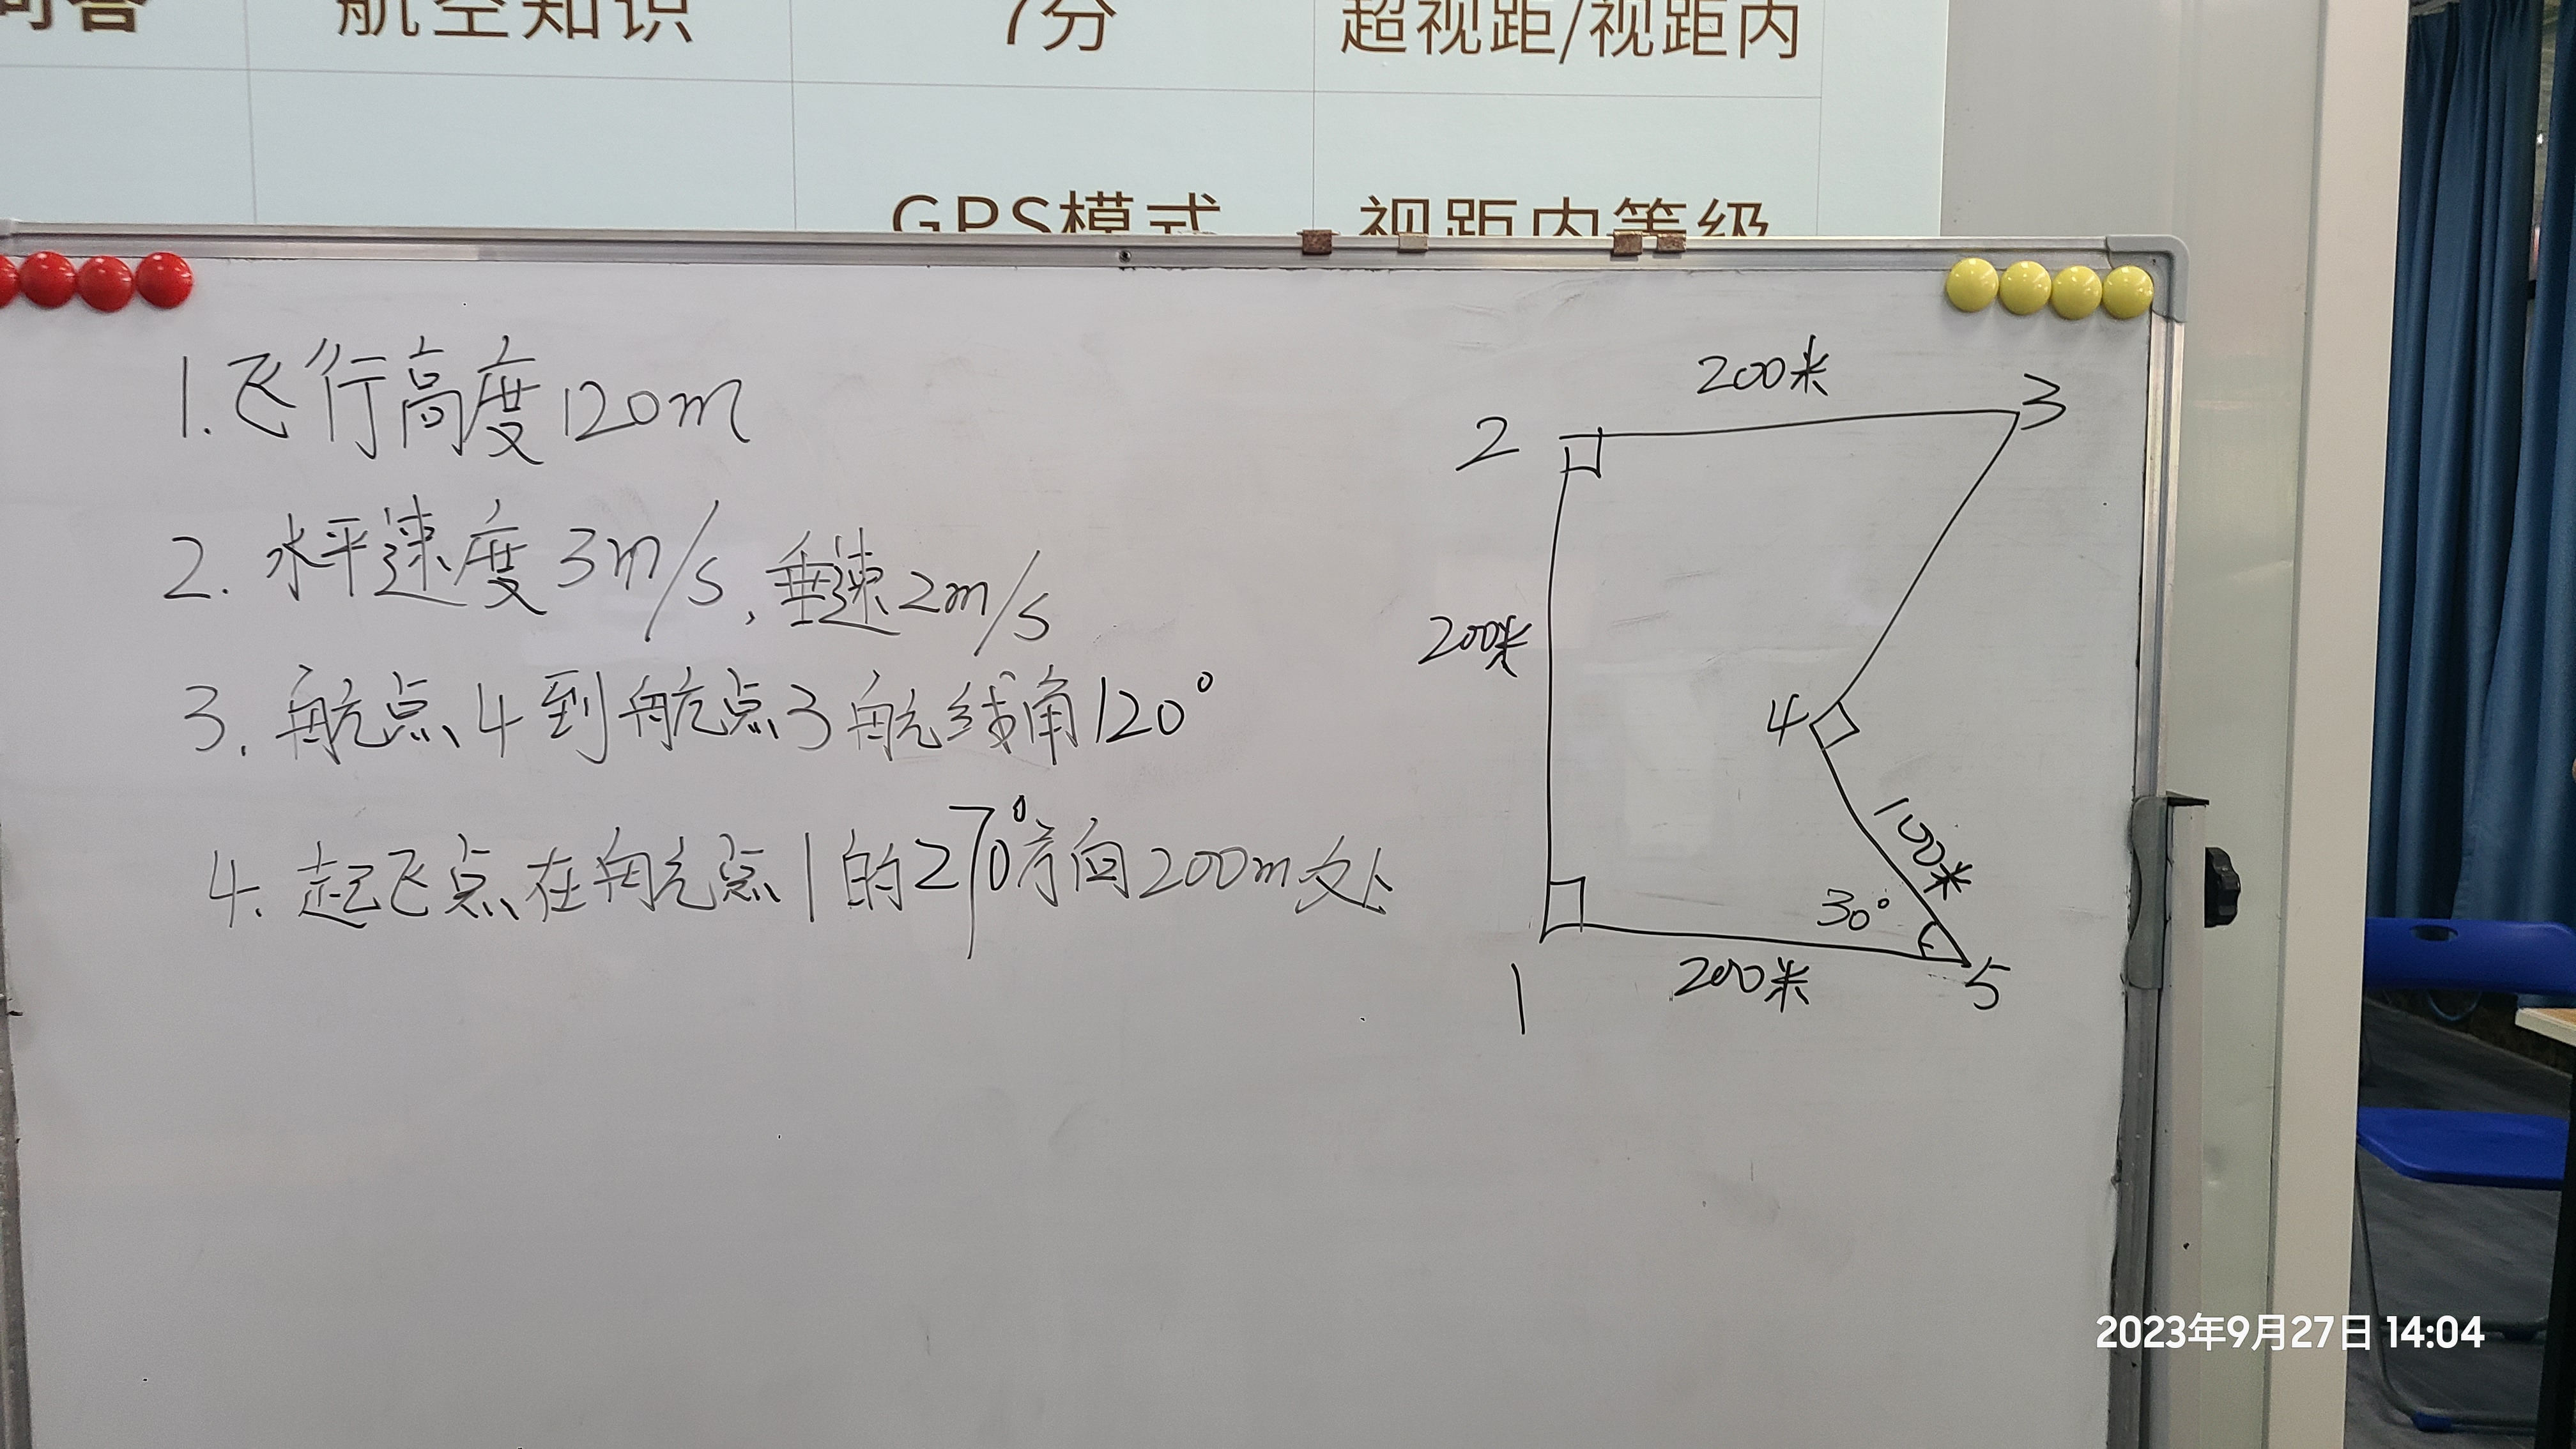 问答 航空知识 7分 超视距/视距内
GPS模式 视距内等级
1.飞行高度120m
2.水平速度3m/s,垂速2m/s
3.航点4到航点3航线角120°
4.起飞点在航点1的270°方向200m处
200米
2
3
200米
4
100米
30°
1
200米
5
2023年9月27日 14:04